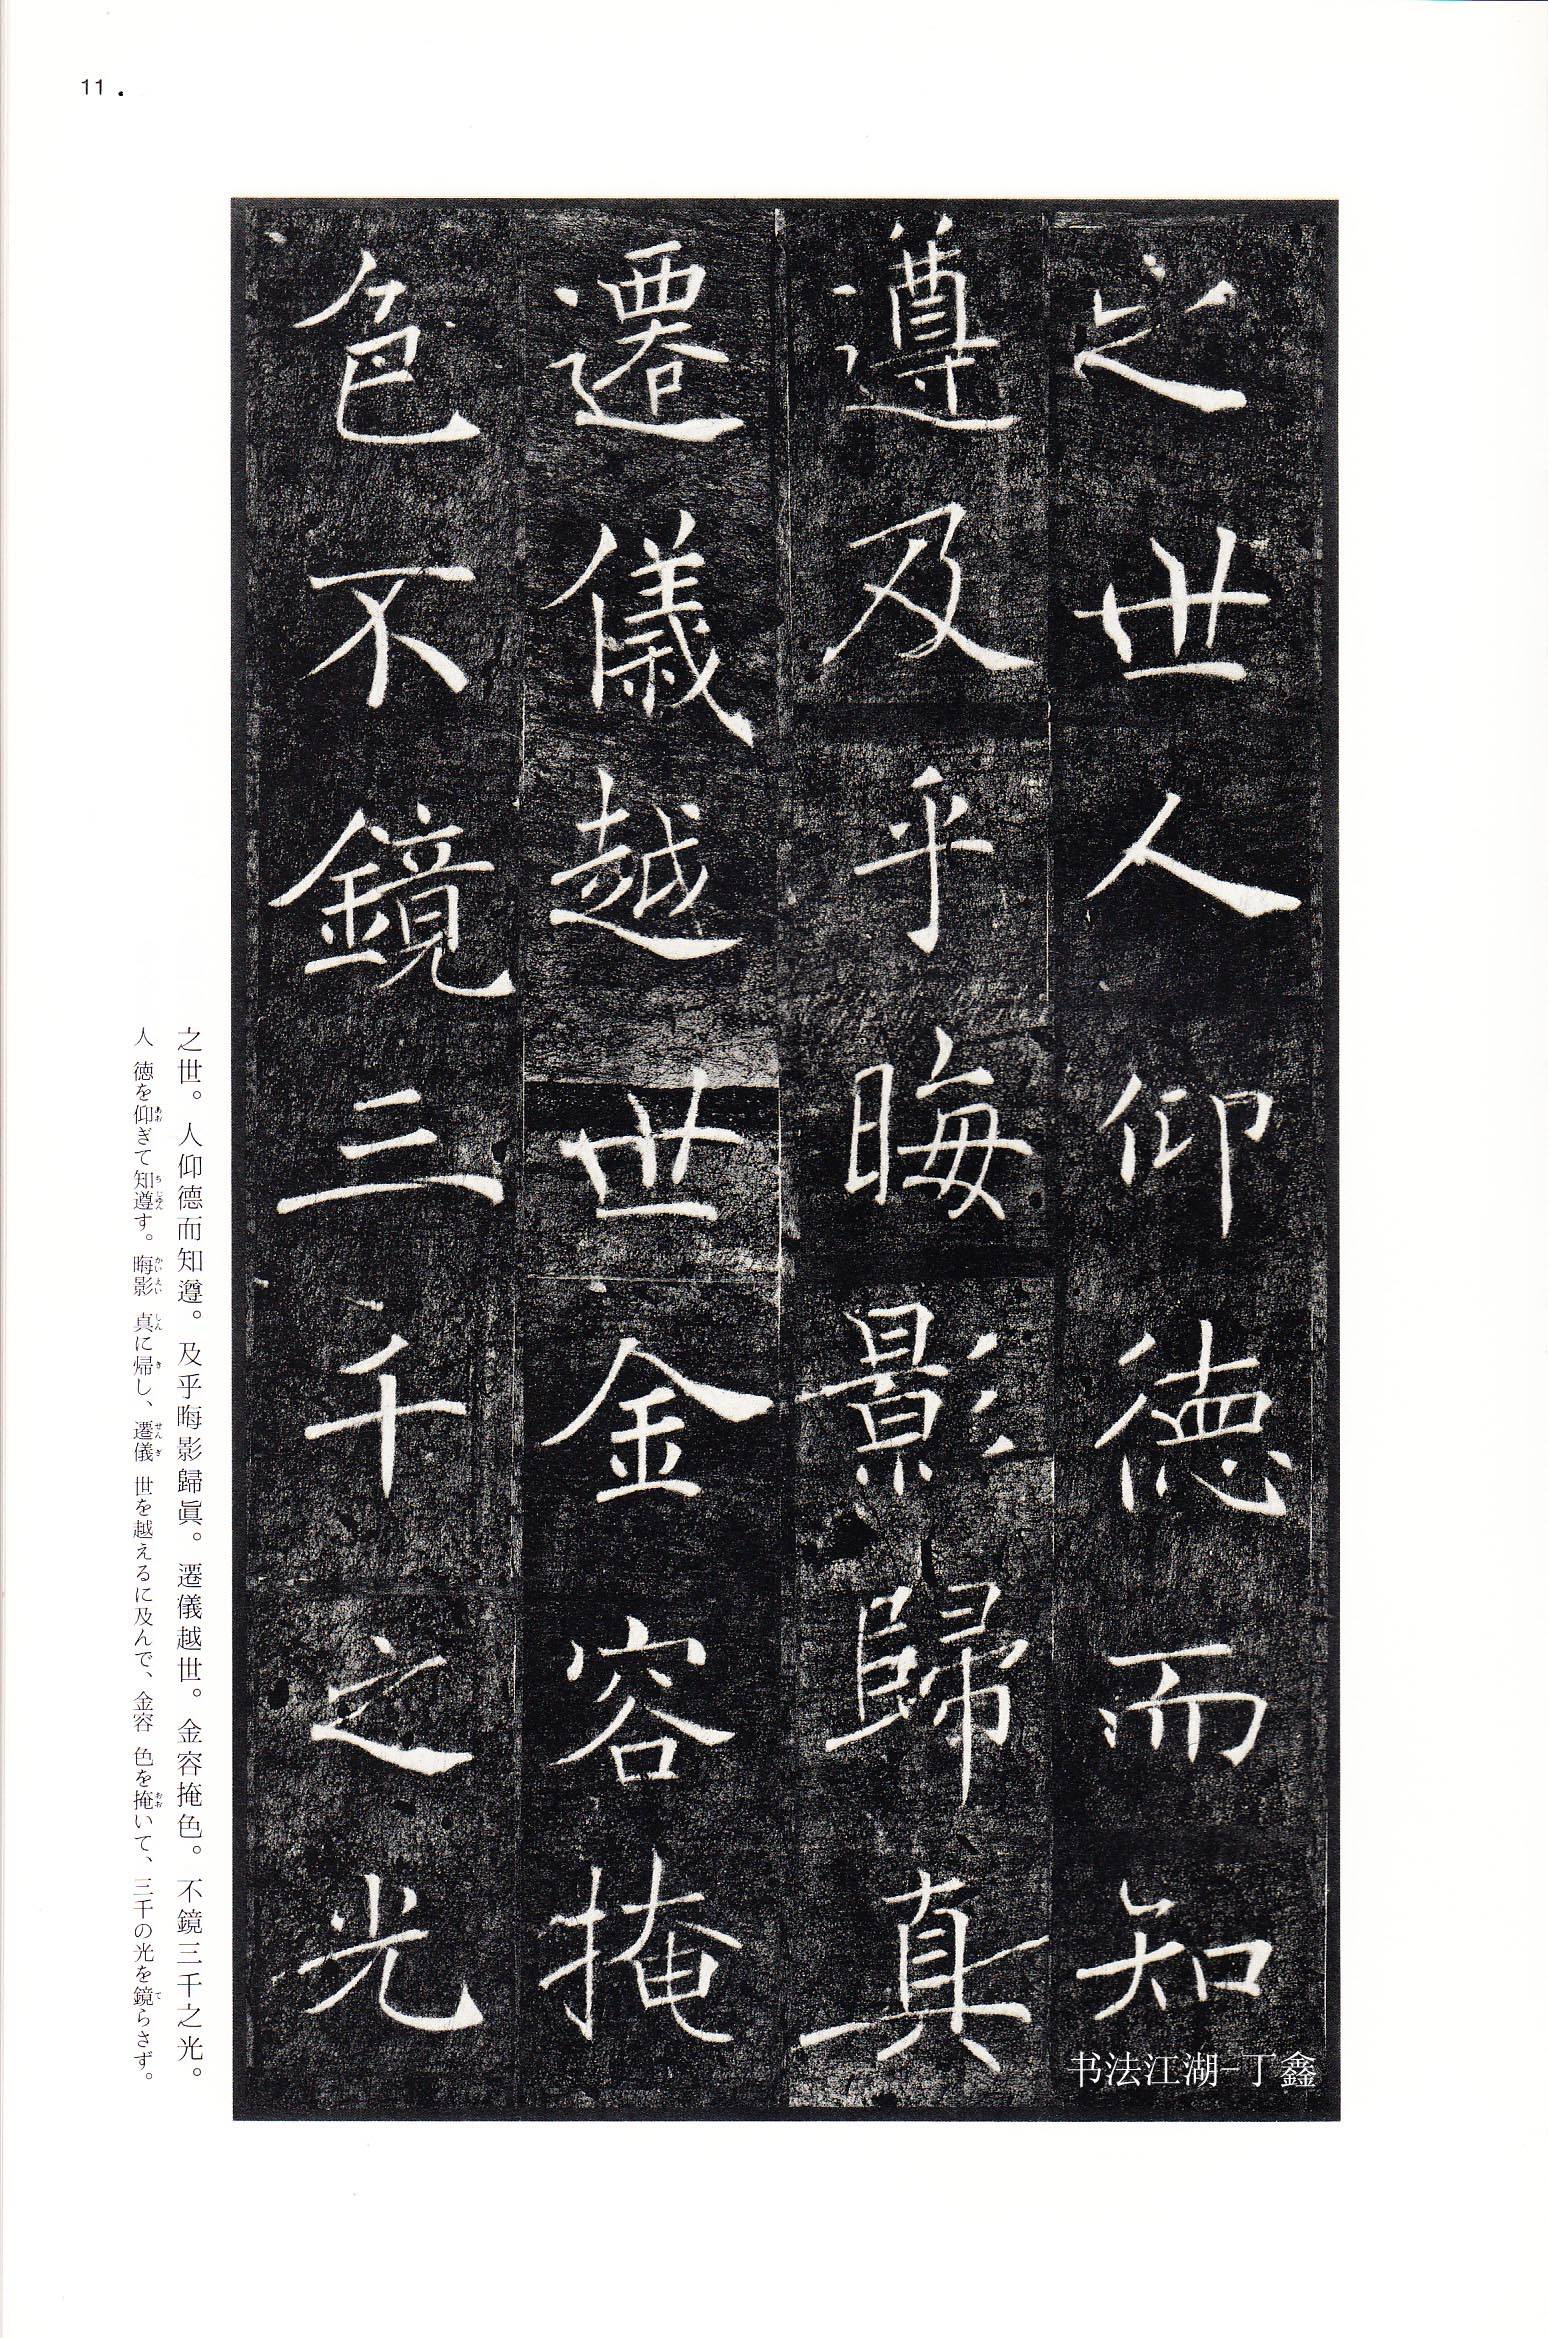 11
之世人仰德而知
遵及乎晦影歸真
遷儀越世金容掩
色不鏡三千之光
书法江湖-丁鑫
之世。人仰德而知遵。及乎晦影歸眞。遷儀越世。金容掩色。不鏡三千之光。
人 徳を仰ぎて知遵す。晦影 真に帰し、遷儀 世を越えるに及んで、金容 色を掩いて、三千の光を鏡らさず。